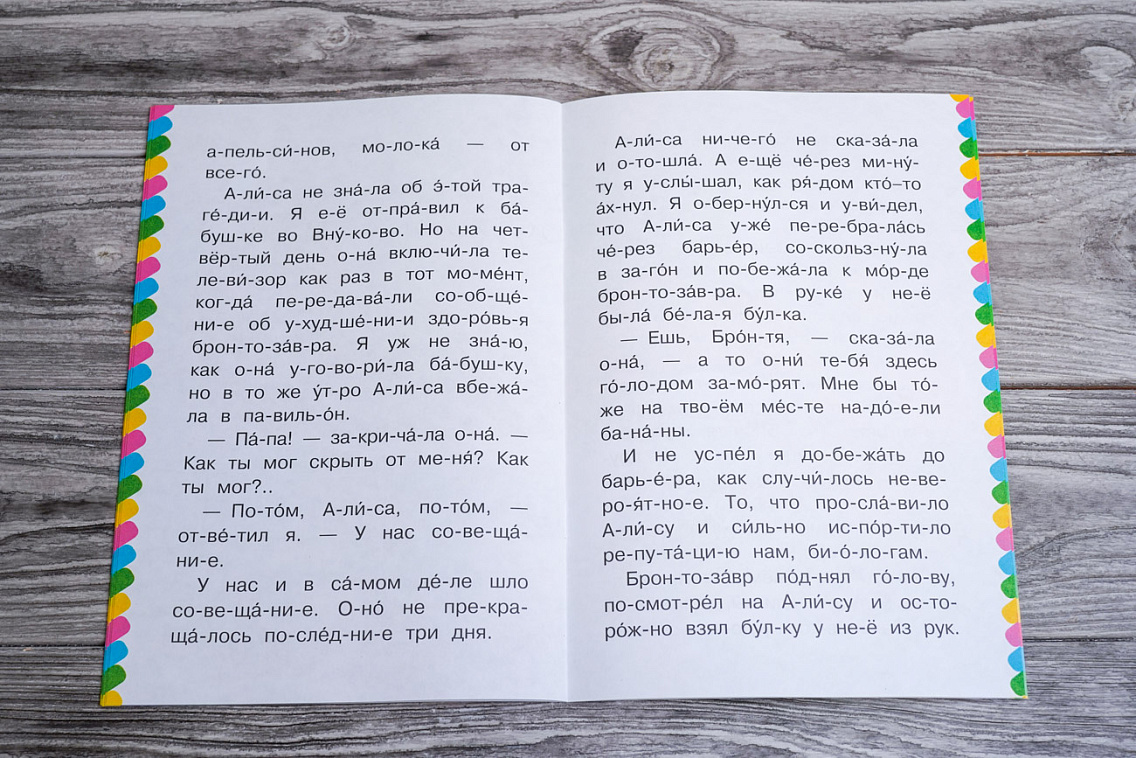 а-пель-си́-нов, мо-ло-ка́ — от
все-го́.
А-ли́-са не зна́-ла об э́-той тра-
ге́-ди-и. Я е-ё от-пра́-вил к ба́-
буш-ке во Вну́-ко-во. Но на чет-
вёр-тый день о-на́ вклю-чи́-ла те-
ле-ви́-зор как раз в тот мо-ме́нт,
ког-да́ пе-ре-да-ва́-ли со-об-ще́-
ни-е об у-худ-ше́-ни-и здо-ро́вь-я
брон-то-за́в-ра. Я уж не зна́-ю,
как о-на́ у-го-во-ри́-ла ба́-буш-ку,
но в то же у́т-ро А-ли́-са вбе-жа́-
ла в па-виль-о́н.
— Па́-па! — за-кри-ча́-ла о-на́. —
Как ты мог скрыть от ме-ня́? Как
ты мог?..
— По-то́м, А-ли́-са, по-то́м, —
от-ве́-тил я. — У нас со-ве-ща́-
ни-е.
У нас и в са́-мом де́-ле шло
со-ве-ща́-ни-е. О-но́ не пре-кра-
ща́-лось по-сле́д-ни-е три дня.
А-ли́-са ни-че-го́ не ска-за́-ла
и о-то-шла́. А е-щё че́-рез ми-ну́-
ту я у-слы́-шал, как ря́-дом кто́–то
а́х-нул. Я о-бер-ну́л-ся и у-ви́-дел,
что А-ли́-са у-же́ пе-ре-бра-ла́сь
че́-рез барь-е́р, со-скольз-ну́-ла
в за-го́н и по-бе-жа́-ла к мо́р-де
брон-то-за́в-ра. В ру-ке́ у не-ё
бы-ла́ бе́-ла-я бу́л-ка.
— Ешь, Бро́н-тя, — ска-за́-ла
о-на́, — а то о-ни́ те-бя́ здесь
го́-ло-дом за-мо́-рят. Мне бы то́-
же на тво-ём ме́с-те на-до́-е-ли
ба-на́-ны.
И не ус-пе́л я до-бе-жа́ть до
барь-е́-ра, как слу-чи́-лось не-ве-
ро-я́т-но-е. То, что про-сла́-ви-ло
А-ли́-су и си́ль-но ис-по́р-ти-ло
ре-пу-та́-ци-ю нам, би-о́-ло-гам.
Брон-то-за́вр по́д-нял го́-ло-ву,
по-смот-ре́л на А-ли́-су и ос-то-
ро́ж-но взял бу́л-ку у не-ё из рук.